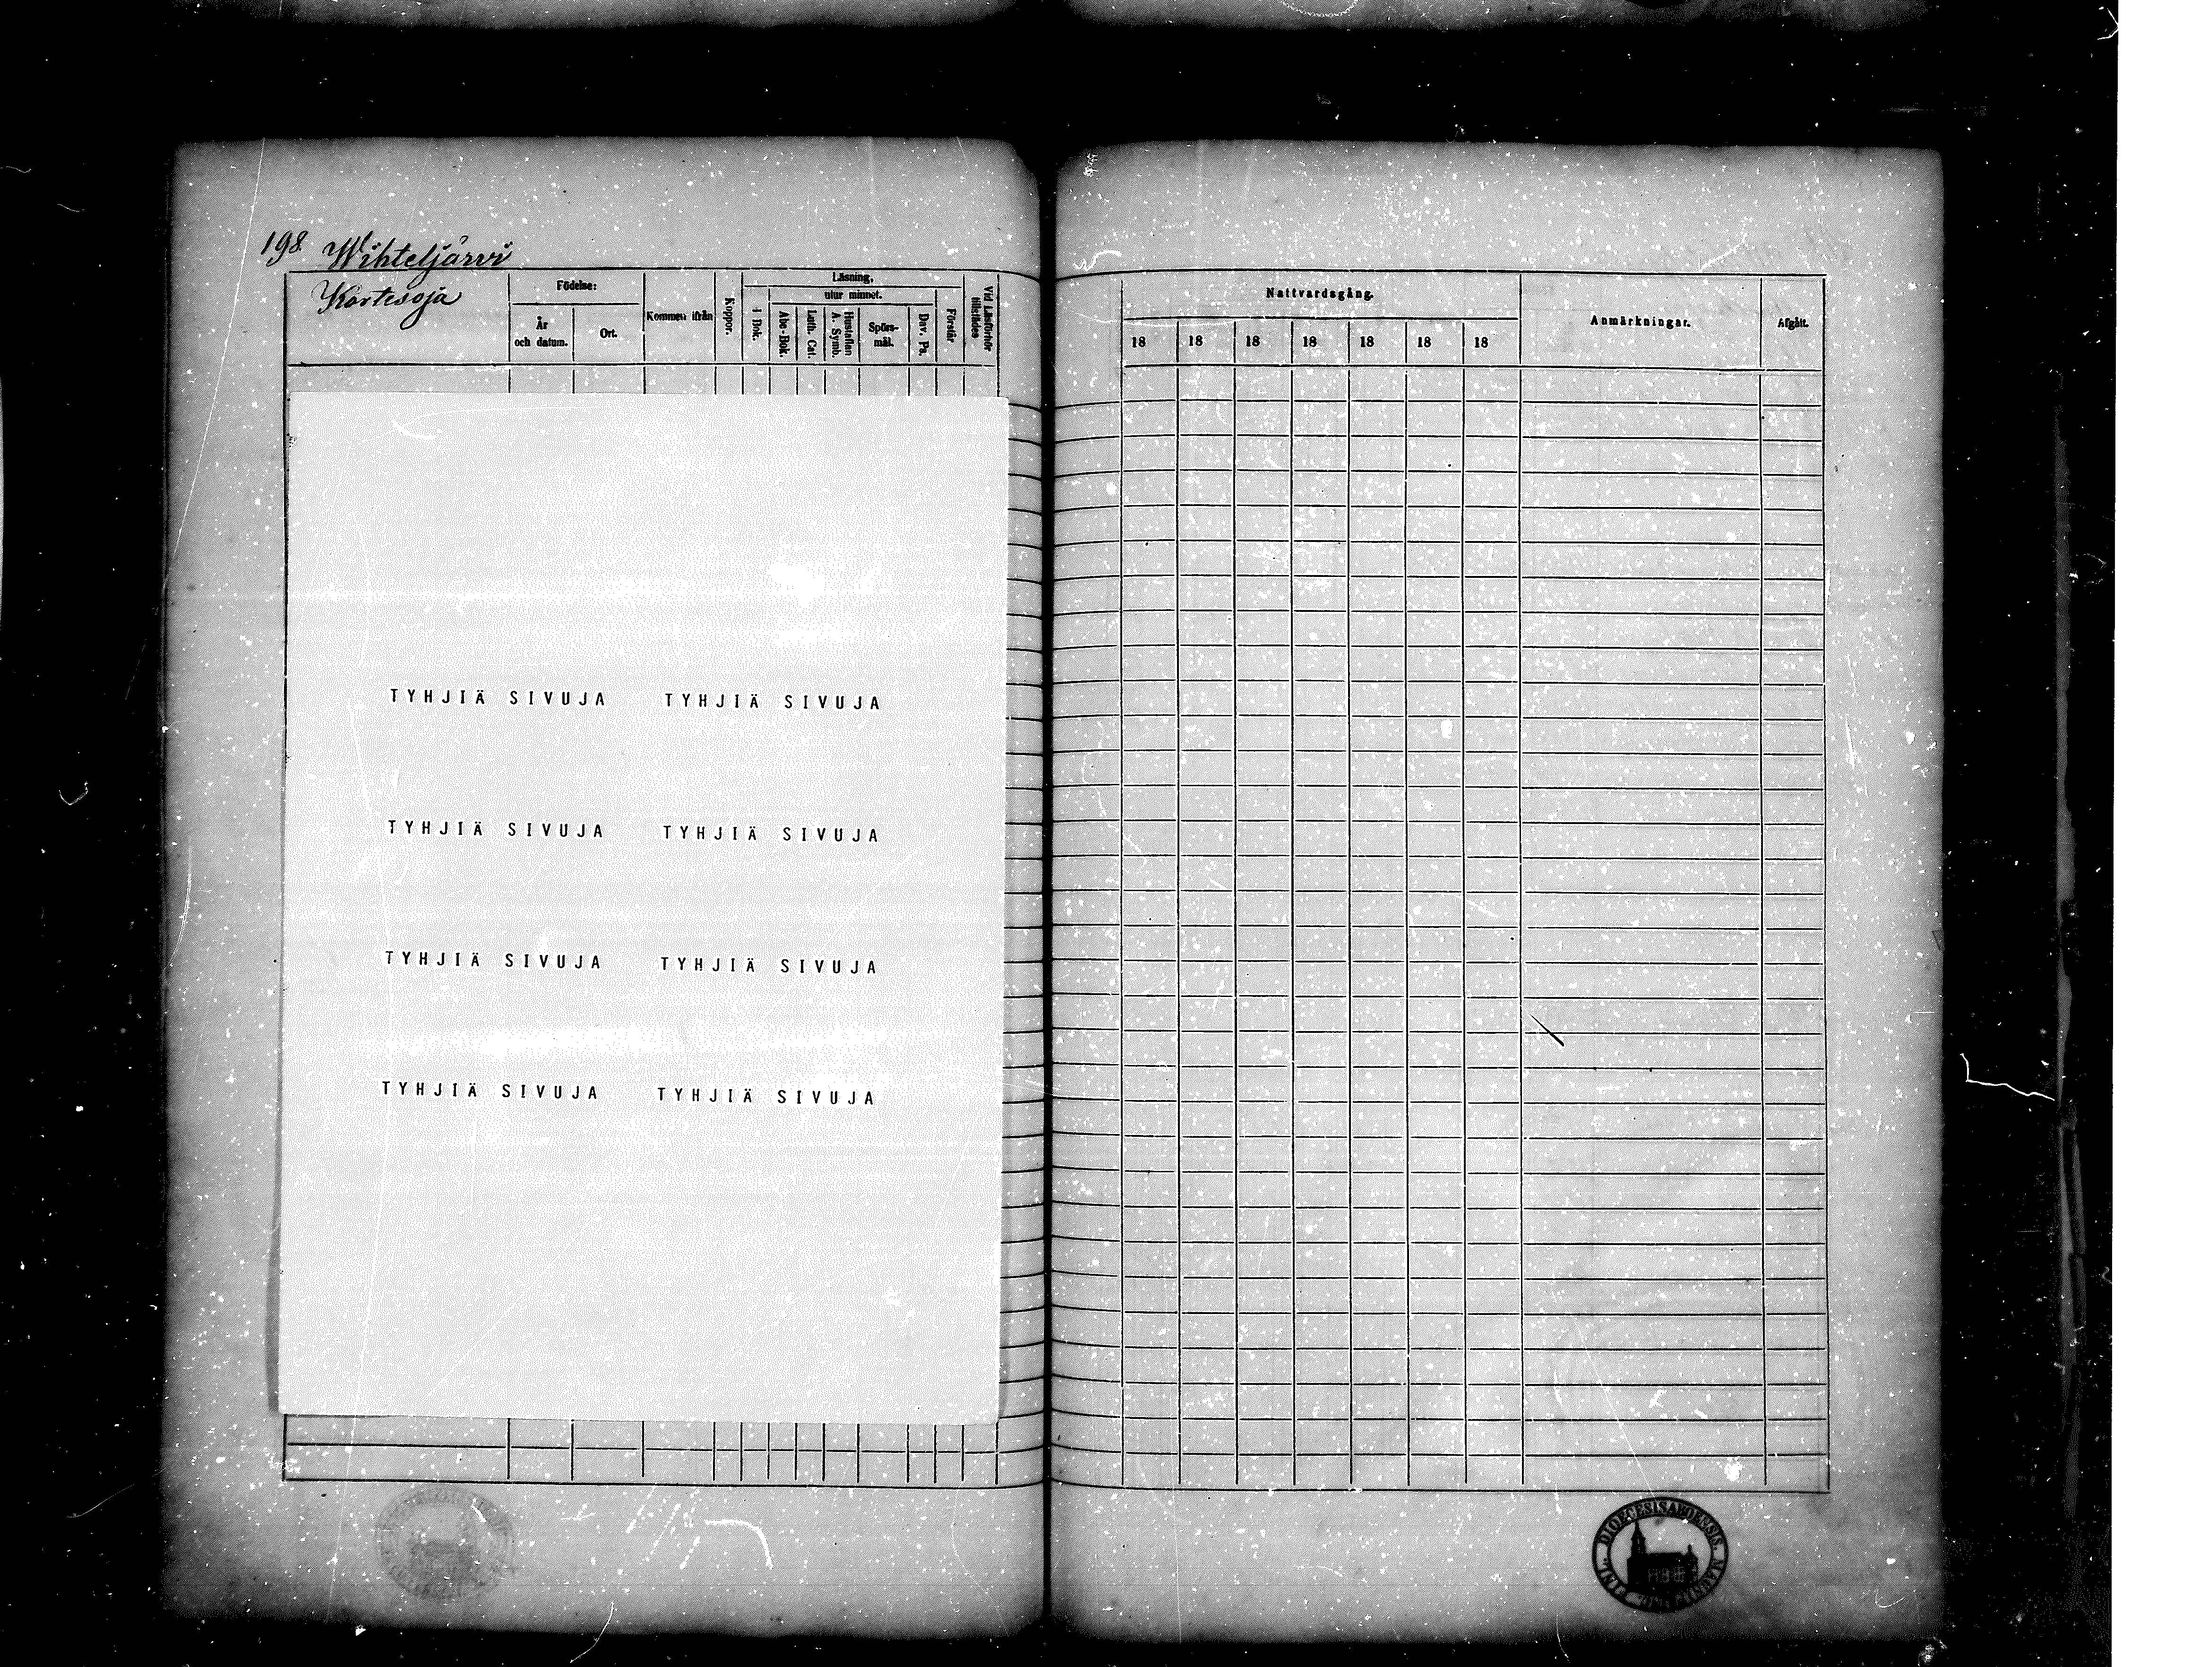 198. Wihteljärvi
Kortesoja
Födelse:
År och datum.
Ort.
Kommen ifrån
Koppor.
Läsning,
utur minnet.
i Bok.
Abc-Bok.
Luth. Cat.
Hustaflan A. Symb.
Spörsmål.
Dav. Ps.
Förstår
Vid Läsförhör tillstädes
Nattvardsgång.
18 18 18 18 18 18 18
Anmärkningar.
Afgått.
TYHJIÄ SIVUJA TYHJIÄ SIVUJA
TYHJIÄ SIVUJA TYHJIÄ SIVUJA
TYHJIÄ SIVUJA TYHJIÄ SIVUJA
TYHJIÄ SIVUJA TYHJIÄ SIVUJA
DIOECESIS ABOENSIS.